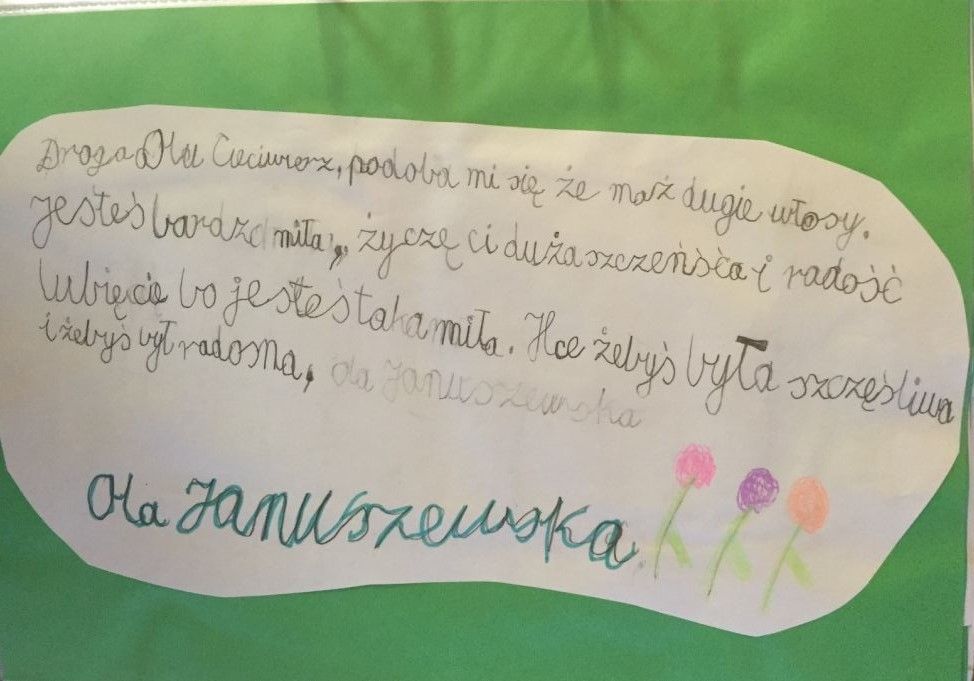 Droga Olu Cieciwierz, podoba mi się że maż dugie włosy.
jesteś bardzo miła, życzę ci duża szczeńśća i radość
lubię cię bo jesteś taka miła. Hce żebyś była szczęśliwa
i żebyś był radosna, Ola Januszewska
Ola Januszewska.